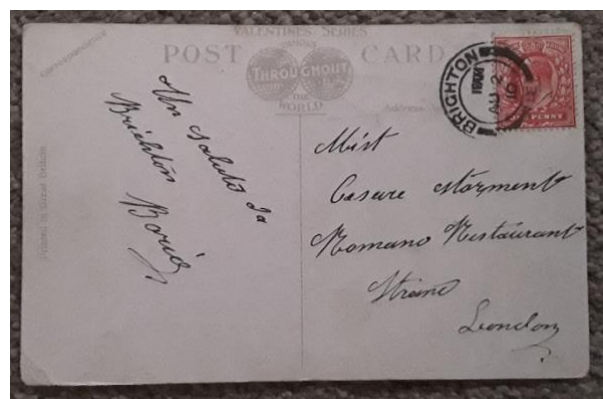 VALENTINES SERIES
POST CARD
FAMOUS
THROUGHOUT
THE
WORLD
Correspondence
Address
Printed in Great Britain
BRIGHTON
AU 2
10
PENNY
Un saluto da
Brighton
Mist
Cesare
Romano Restaurant
London